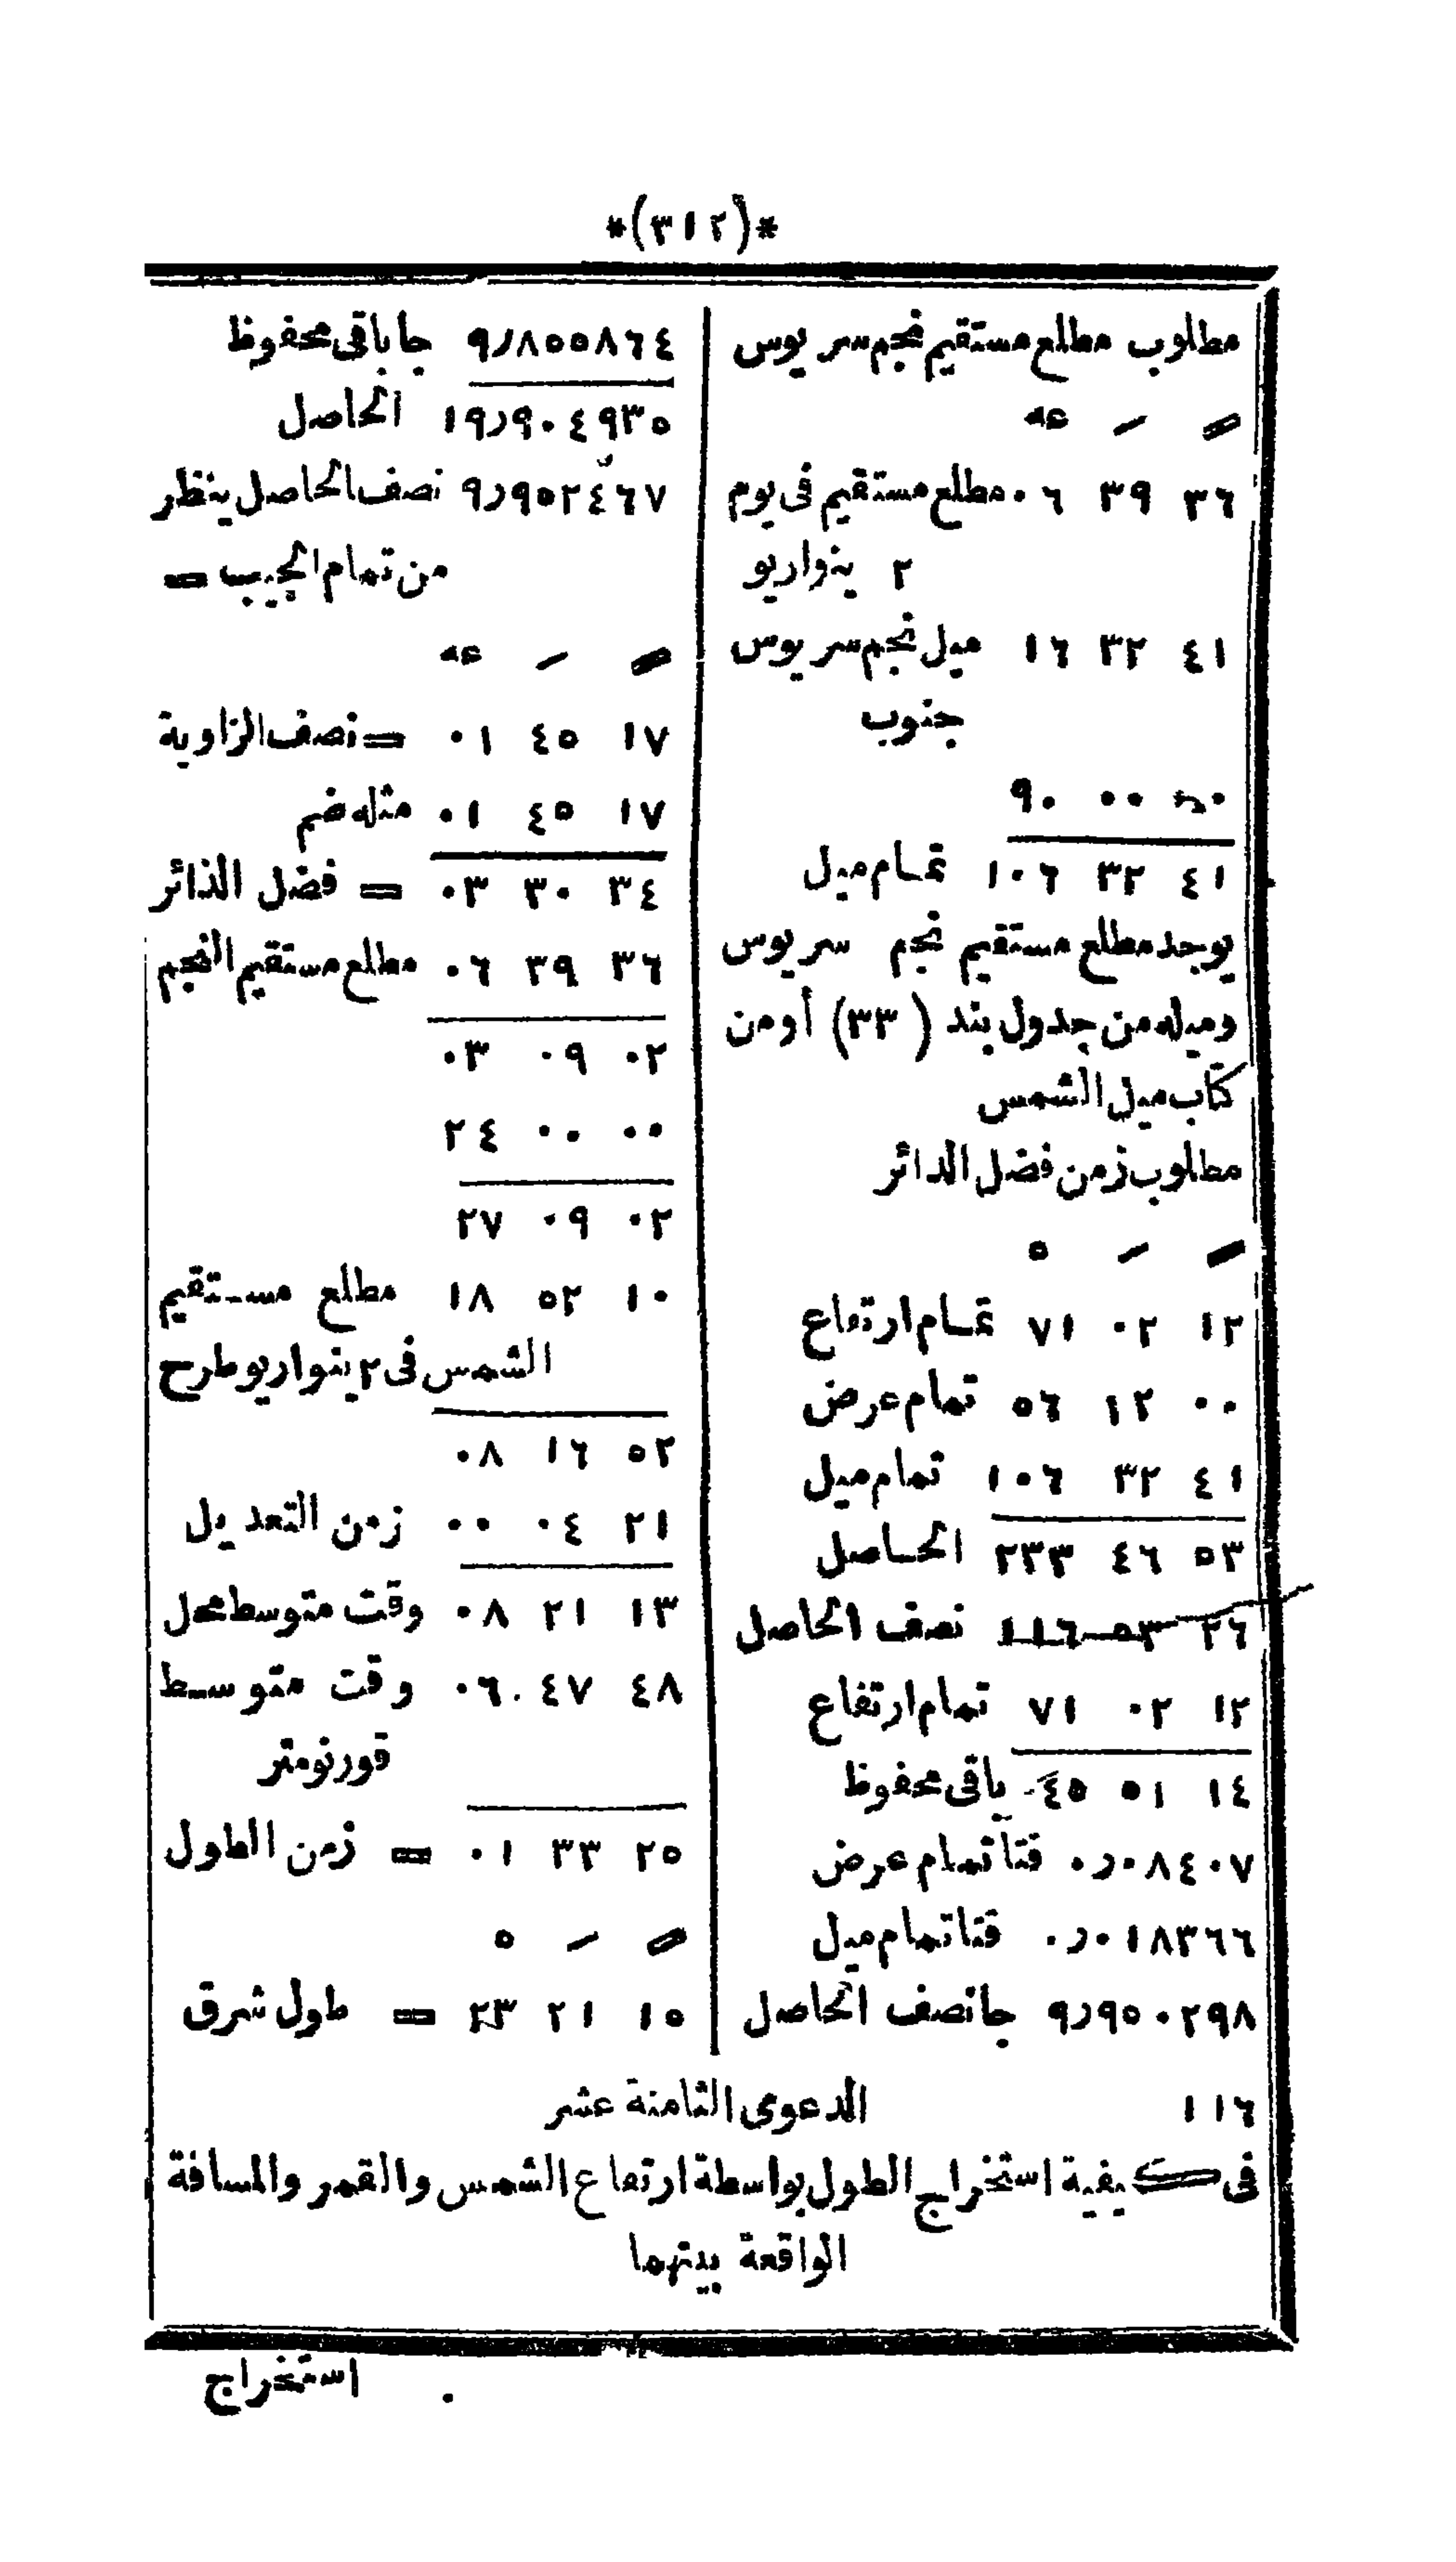 *(٣١٢)*
مطلوب مطلع مستقيم نجم سريوس
〃 ′ عه
٣٦ ٣٩ ٠٦ مطلع مستقيم فى يوم
٢ ينواريو
٤١ ٣٢ ١٦ ميل نجم سريوس
جنوب
٠٠ ٠٠ ٩٠
٤١ ٣٢ ١٠٦ تمام ميل
يوجد مطلع مستقيم نجم سريوس
وميله من جدول بند (٣٣) أومن
كتاب ميل الشمس
مطلوب زمن فضل الدائر
〃 ′ ه
١٢ ٠٢ ٧١ تمام ارتفاع
٠٠ ١٢ ٥٦ تمام عرض
٤١ ٣٢ ١٠٦ تمام ميل
٥٣ ٤٦ ٢٣٣ الحاصل
٢٦ ٥٣ ١١٦ نصف الحاصل
١٢ ٠٢ ٧١ تمام ارتفاع
١٤ ٥١ ٤٥ باقى محفوظ
٠٫٠٨٤٠٧ قتا تمام عرض
٠٫٠١٨٣٦٦ قتا تمام ميل
٩٫٩٥٠٢٩٨ جا نصف الحاصل
٩٫٨٥٥٨٦٤ جا باقى محفوظ
١٩٫٩٠٤٩٣٥ الحاصل
٩٫٩٥٢٤٦٧ نصف الحاصل ينظر
من تمام الجيب =
〃 ′ عه
١٧ ٤٥ ٠١ = نصف الزاوية
١٧ ٤٥ ٠١ مثله ضم
٣٤ ٣٠ ٠٣ = فضل الدائر
٣٦ ٣٩ ٠٦ مطلع مستقيم النجم
٠٢ ٠٩ ٠٣
٠٠ ٠٠ ٢٤
٠٢ ٠٩ ٢٧
١٠ ٥٢ ١٨ مطلع مستقيم
الشمس فى ٢ ينواريو طرح
٥٢ ١٦ ٠٨
٢١ ٠٤ ٠٠ زمن التعديل
١٣ ٢١ ٠٨ وقت متوسط محل
٤٨ ٤٧ ٠٦ وقت متوسط
قورنومتر
٢٥ ٣٣ ٠١ = زمن الطول
〃 ′ ه
١٥ ٢١ ٢٣ = طول شرق
١١٦ الدعوى الثامنة عشر
فى كيفية استخراج الطول بواسطة ارتفاع الشمس والقمر والمسافة
الواقعة بينهما
استخراج